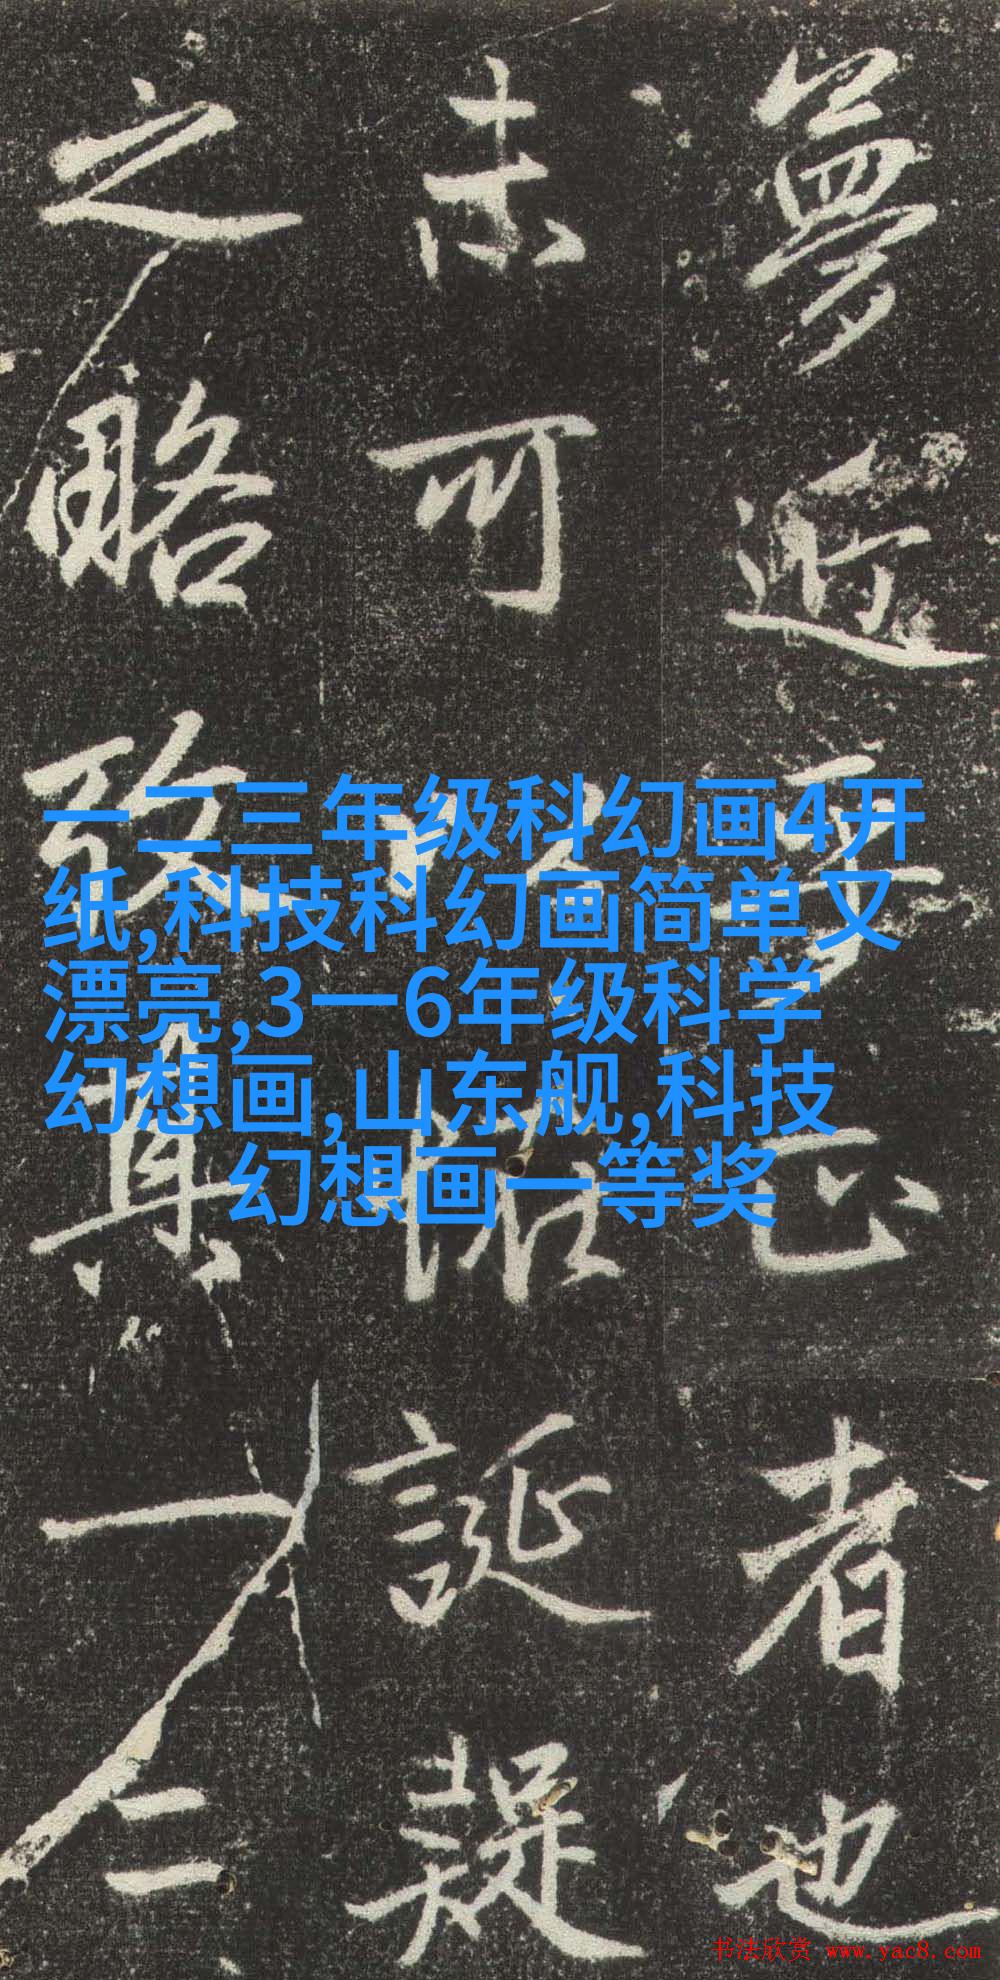 夢近正者也
可誕疑
之略致真一仁
一二三年级科幻画4开
纸,科技科幻画简单又
漂亮,3一6年级科学
幻想画,山东舰,科技
幻想画一等奖
书法欣赏 www.yac8.com